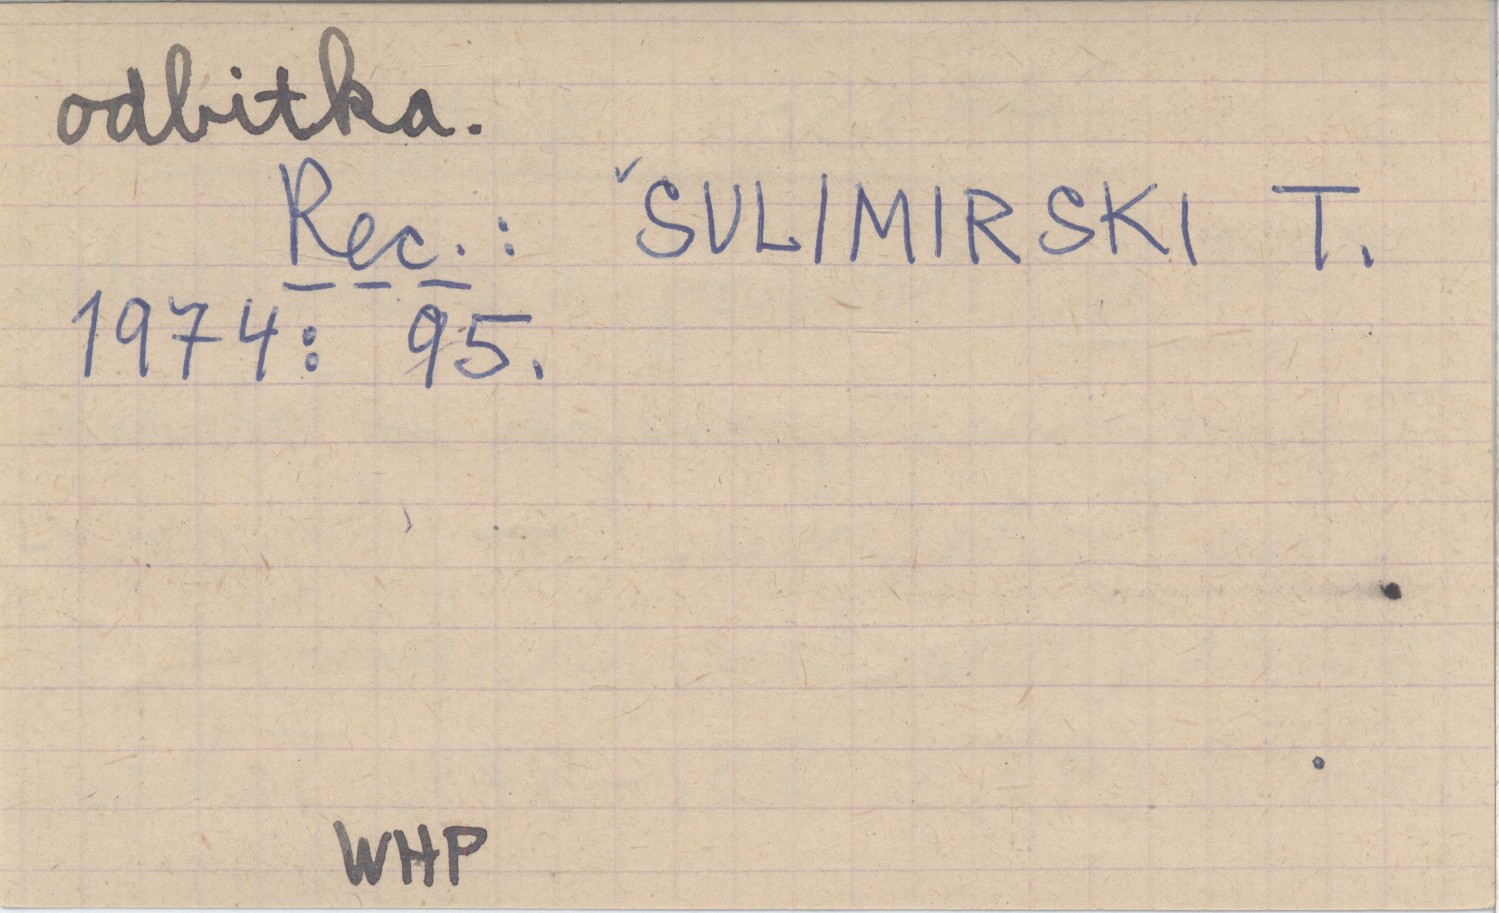 odbitka.
Rec.: SULIMIRSKI T.
1974: 95.
WHP